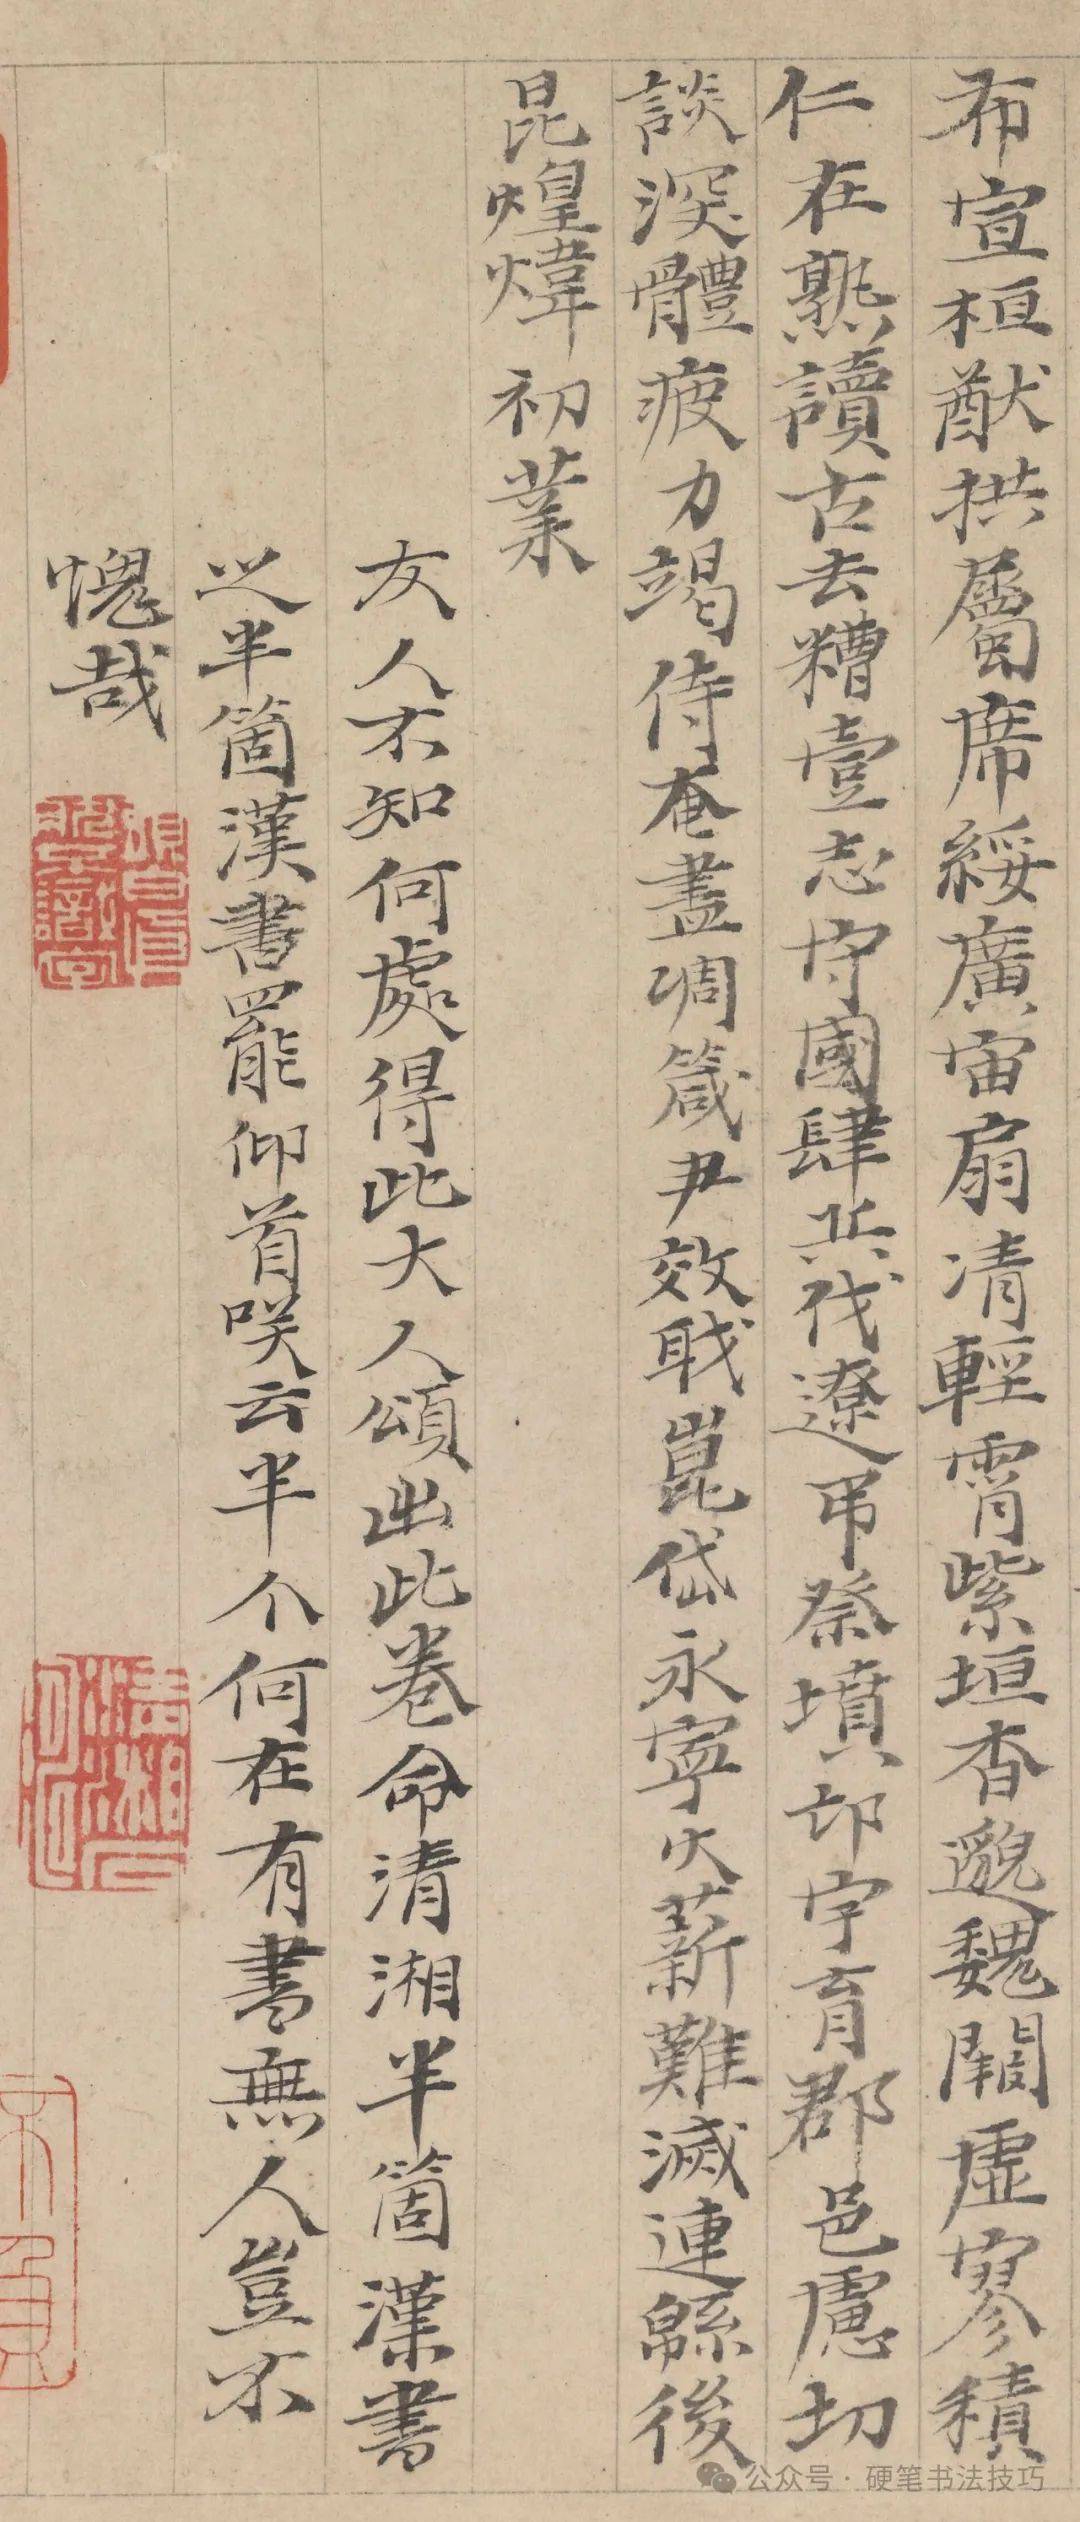 布宣桓猷拱屬席綏廣宙扇清輕霄紫垣杳邈魏闕虛寥積
仁在熟讀古去糟壹志守國肆兵伐遼弔祭墳印字育郡邑慮切
談深體疲力竭侍奄盡凋箴尹效戢崑岱永寧火薪難滅連緜後
昆煌煒初業
友人不知何處得此大人頌出此卷命清湘半箇漢書
之半箇漢書罷仰首咲云半个何在有書無人豈不
愧哉
公众号·硬笔书法技巧